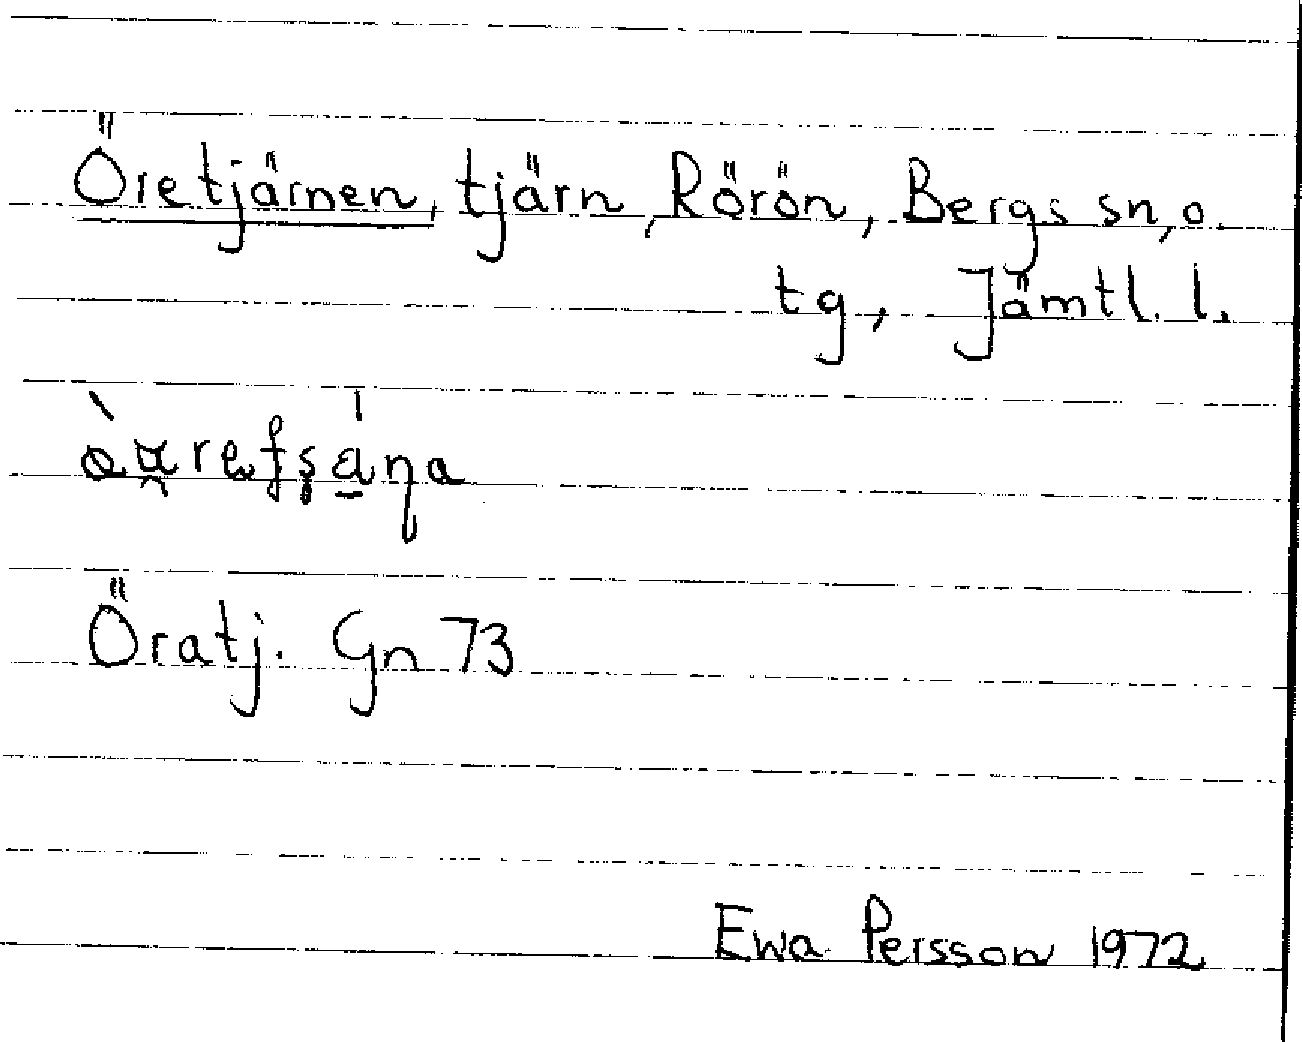 Öretjärnen, tjärn, Rörön, Bergs sn, o.
tg, Jämtl. l.
Öratj. Gn 73
Ewa Persson 1972